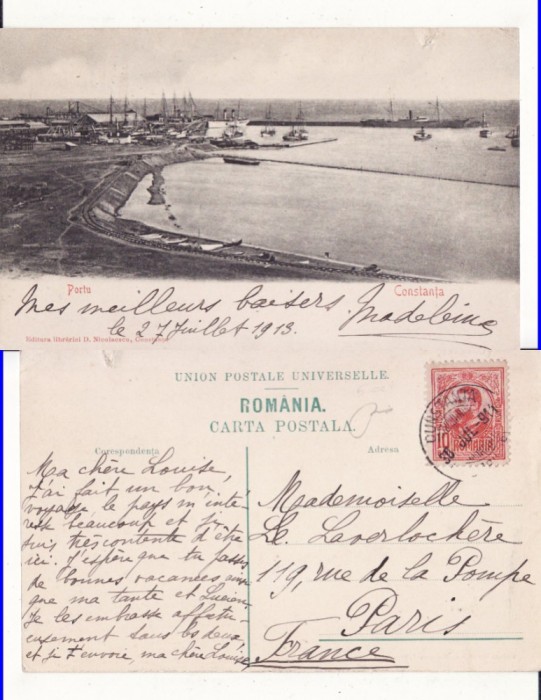 Portu
Constanța
Mes meilleurs baisers. Madeleine
le 27 Juillet 1913.
Editura librăriei D. Nicolaescu, Constanța
UNION POSTALE UNIVERSELLE.
ROMÂNIA.
CARTA POSTALA.
Corespondența
Adresa
CONSTANTA
10
Ma chère Louise,
J'ai fait un bon
voyage, le pays m'inté-
resse beaucoup et je
suis très contente d'être
ici. J'espère que tu passes
de bonnes vacances ainsi
que ma tante et Lucien,
Je les embrasse affectu-
eusement tous les deux,
et je t'envoie, ma chère Louise,
Mademoiselle
Le Laverlochère
119, rue de la Pompe
Paris
France